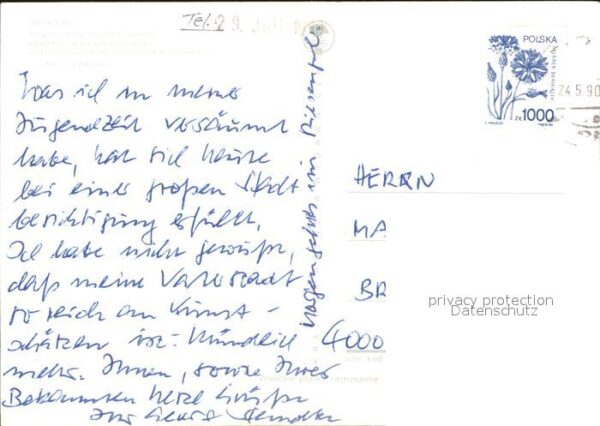 Tel.: 29. Juli
Was ich in meiner
Jugendzeit versäumt
habe, hat sich heute
bei einer großen Stadt-
besichtigung erfüllt.
Ich habe nicht gewußt,
daß meine Vaterstadt
so reich an Kunst-
schätzen ist. Mündlich
mehr. Ihnen, sowie Ihren
Bekannten herzl Grüße
Ihr Georg
im
POLSKA
ZŁ 1000
24.5.90
HERRN
MA
BR
4000
privacy protection
Datenschutz